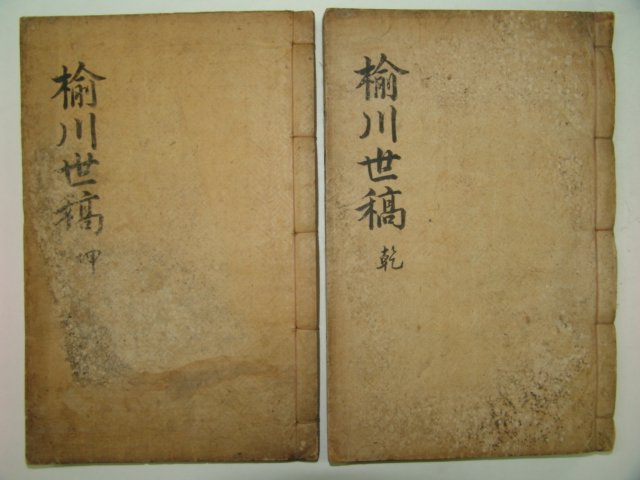 榆川世稿 乾
榆川世稿 坤